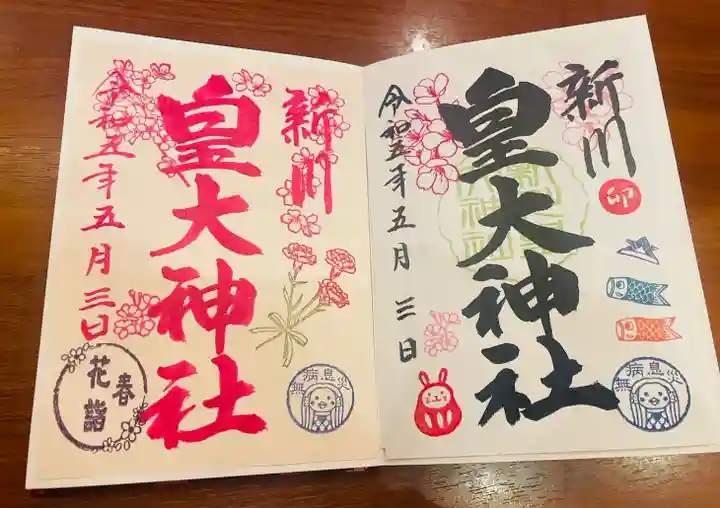 新川
皇大神社
令和五年五月三日
卯
無病息災
新川
皇大神社
令和五年五月三日
春
花詣
無病息災